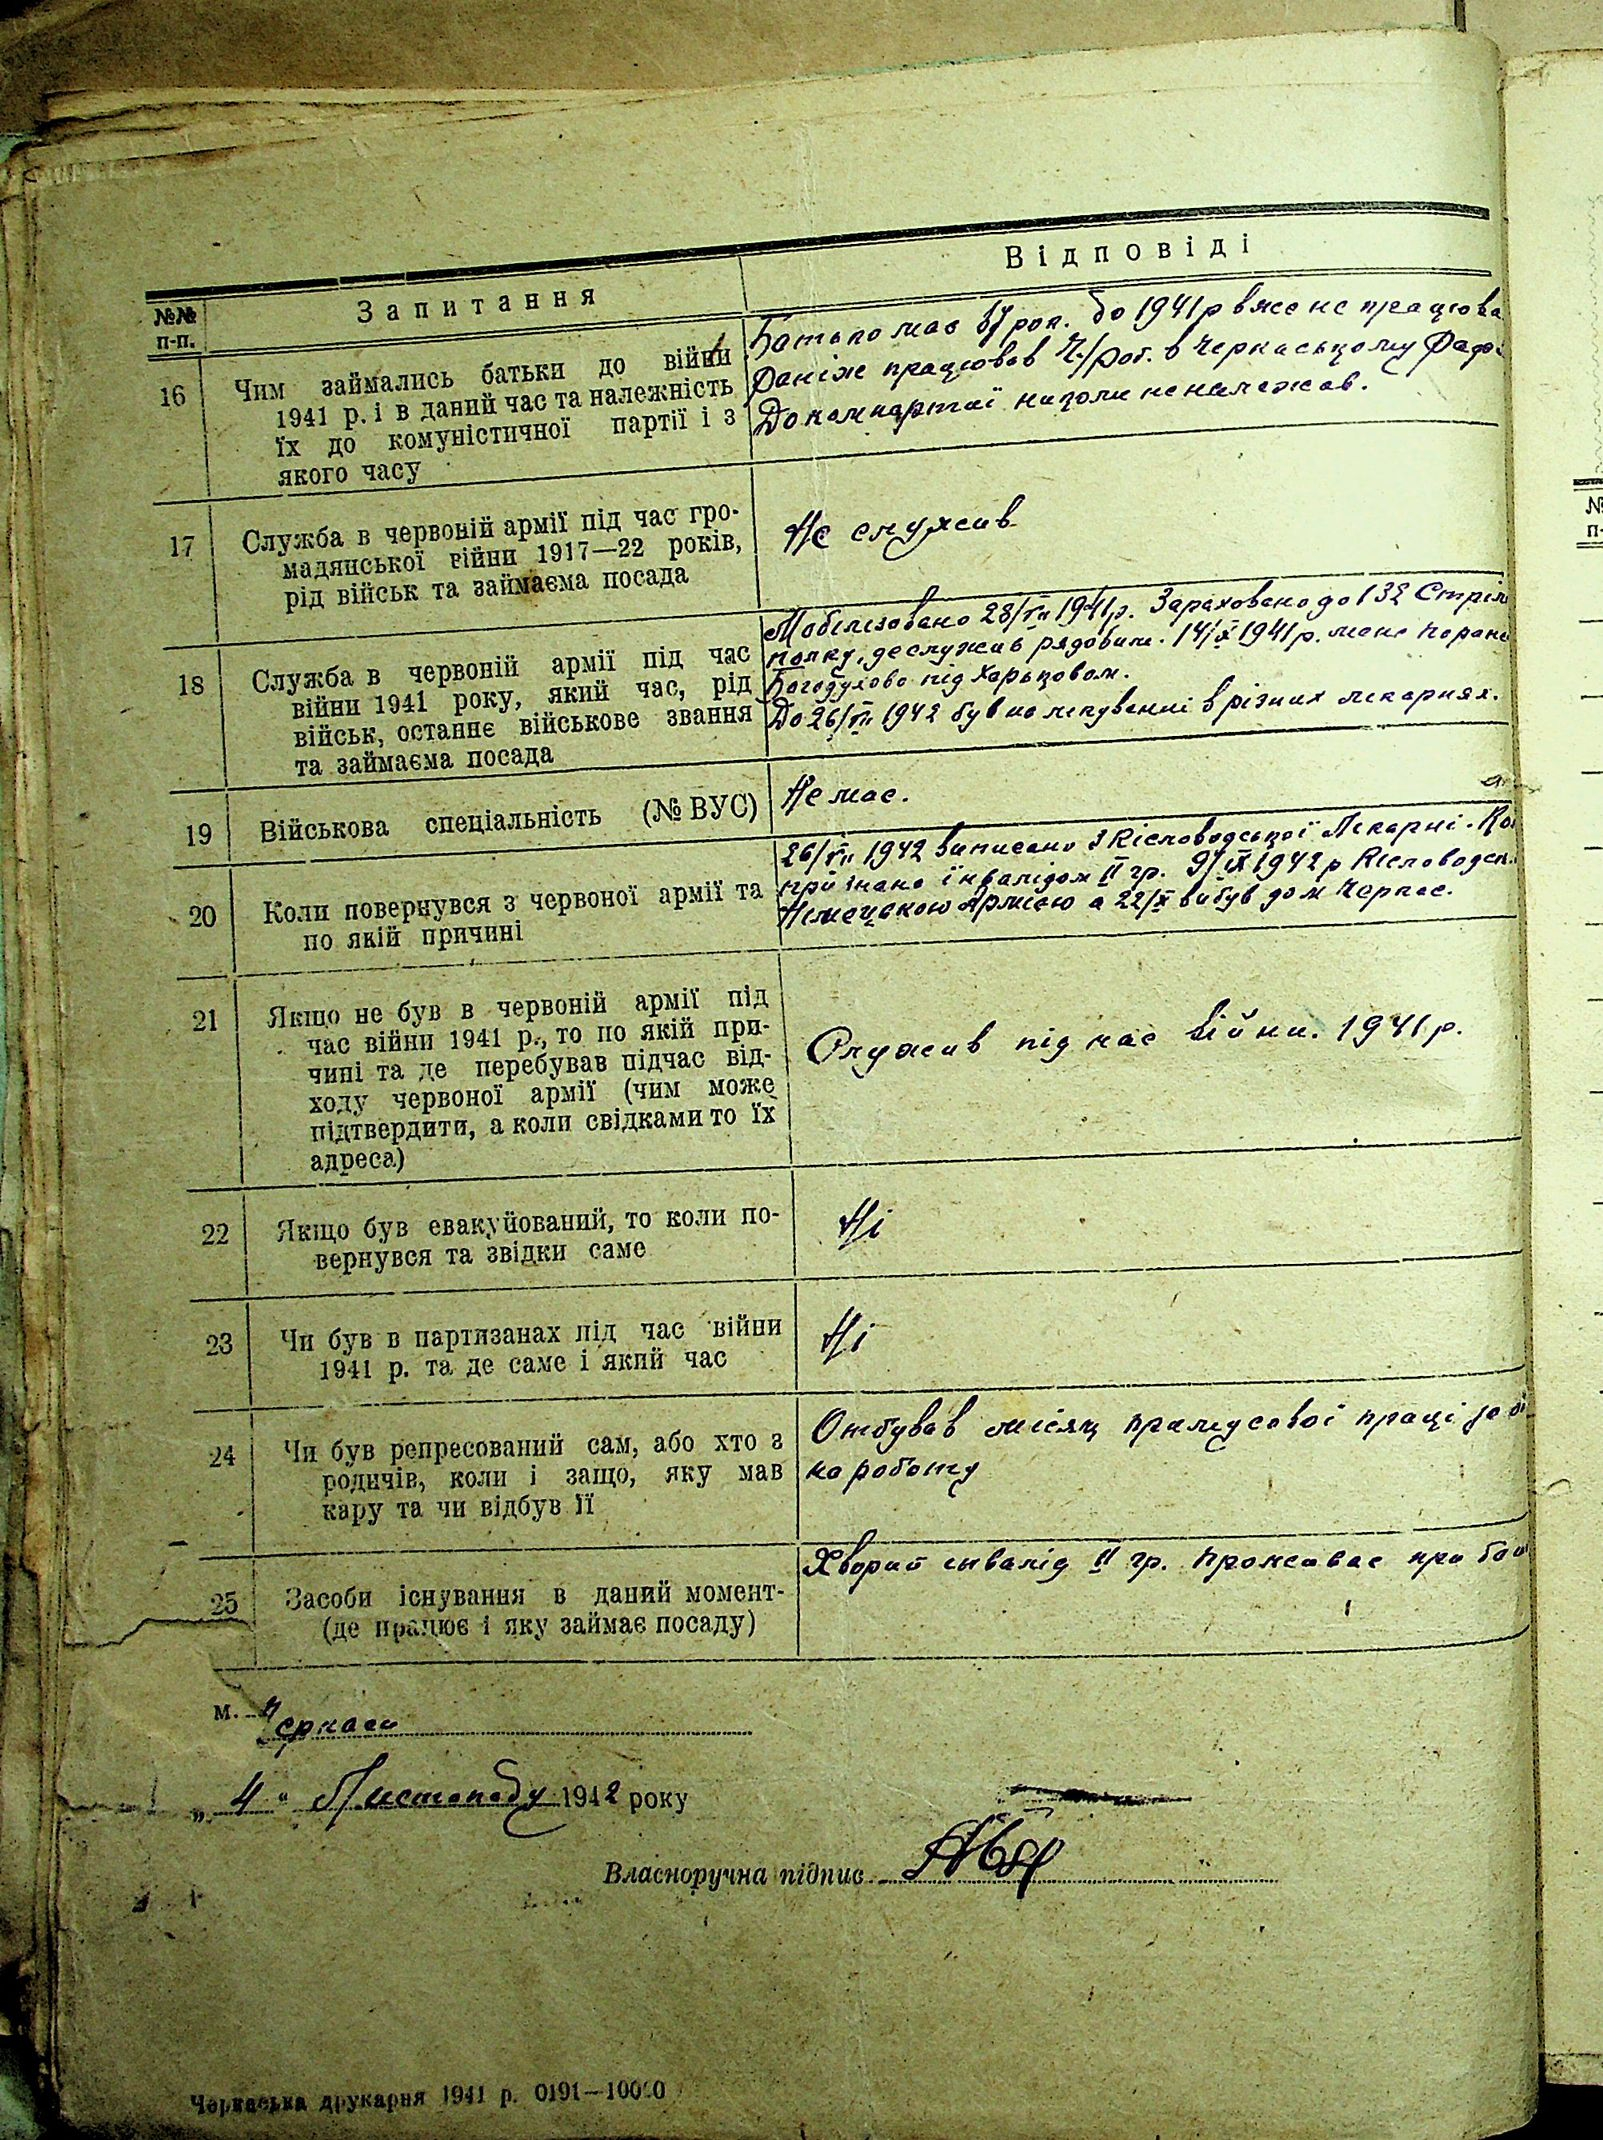 №№ п-п.
Запитання
Відповіді
16
Чим займались батьки до війни
1941 р. і в даний час та належність
їх до комуністичної партії і з
якого часу
Батько має 67 рок. До 1941 р вже не працюва
Раніш працював Ч/роб. в Черкаському
До компартії ніколи не належав.
17
Служба в червоній армії під час гро-
мадянської війни 1917—22 років,
рід військ та займаєма посада
Не служив
18
Служба в червоній армії під час
війни 1941 року, який час, рід
військ, останнє військове звання
та займаєма посада
Мобілізовано 28/VII 1941 р. Зараховано до 132 Стріл
полку, де служив рядовим. 14/X 1941 р. мене поране
Богодухово під Харьковом.
До 26/VII 1942 був на лікуванні в різних лікарнях.
19
Військова спеціальність (№ ВУС)
Не має.
20
Коли повернувся з червоної армії та
по якій причині
26/VII 1942 виписано з Кісловодської Лікарні.
признано інвалідом II гр. 9/IX 1942 р Кісловодськ
Німецькою Армією а 22/X вибув дом Черкас.
21
Якщо не був в червоній армії під
час війни 1941 р., то по якій при-
чині та де перебував підчас від-
ходу червоної армії (чим може
підтвердити, а коли свідками то їх
адреса)
Служив під час війни. 1941 р.
22
Якщо був евакуйований, то коли по-
вернувся та звідки саме
Ні
23
Чи був в партизанах під час війни
1941 р. та де саме і який час
Ні
24
Чи був репресований сам, або хто з
родичів, коли і защо, яку мав
кару та чи відбув її
Отбував місяц прамусової праці за
на роботу
25
Засоби існування в даний момент-
(де працює і яку займає посаду)
Хворий інвалід II гр. проживає при
м. Черкаси
„ 4 " Листопаду 1942 року
Власноручна підпис
Черкаська друкарня 1941 р. 0191—10000